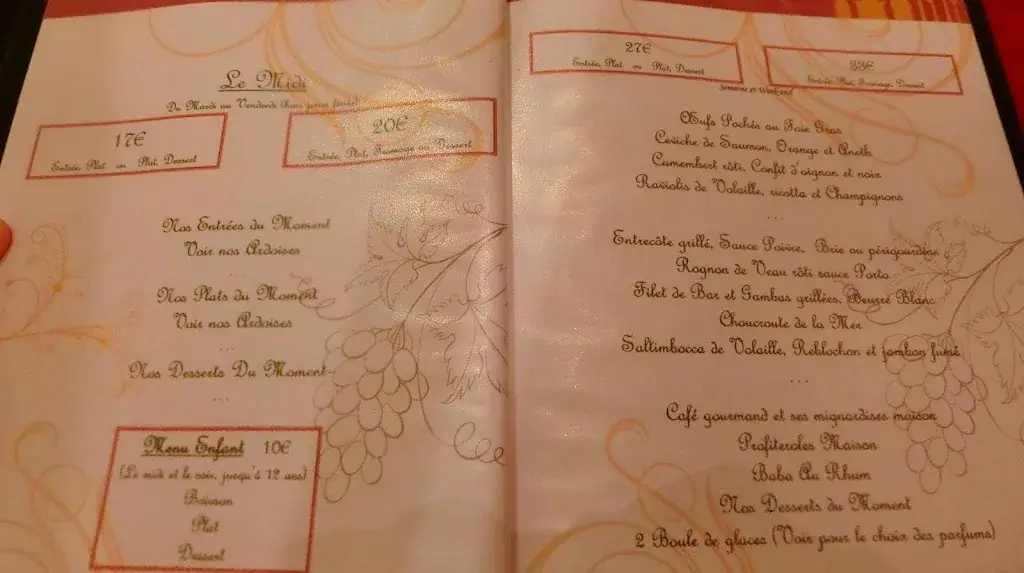 Le Midi
Du Mardi au Vendredi (hors jours fériés)
17€
Entrée, Plat ou Plat, Dessert
20€
Entrée, Plat, Fromage ou Dessert
Nos Entrées du Moment
Voir nos Ardoises
...
Nos Plats du Moment
Voir nos Ardoises
...
Nos Desserts Du Moment
...
Menu Enfant 10€
(Le midi et le soir, jusqu'à 12 ans)
Boisson
Plat
Dessert
27€
Entrée, Plat ou Plat, Dessert
33€
Entrée, Plat, Fromage, Dessert
Semaine et Week-end
Œufs Pochés au Foie Gras
Ceviche de Saumon, Orange et Aneth
Camembert rôti, Confit d'oignon et noix
Raviolis de Volaille, ricotta et Champignons
...
Entrecôte grillé, Sauce Poivre, Brie ou périgourdine
Rognon de Veau rôti sauce Porto
Filet de Bar et Gambas grillées, Beurre Blanc
Choucroute de la Mer
Saltimbocca de Volaille, Reblochon et jambon fumé
...
Café gourmand et ses mignardises maison
Profiteroles Maison
Baba Au Rhum
Nos Desserts du Moment
2 Boule de glaces (Voir pour le choix des parfums)